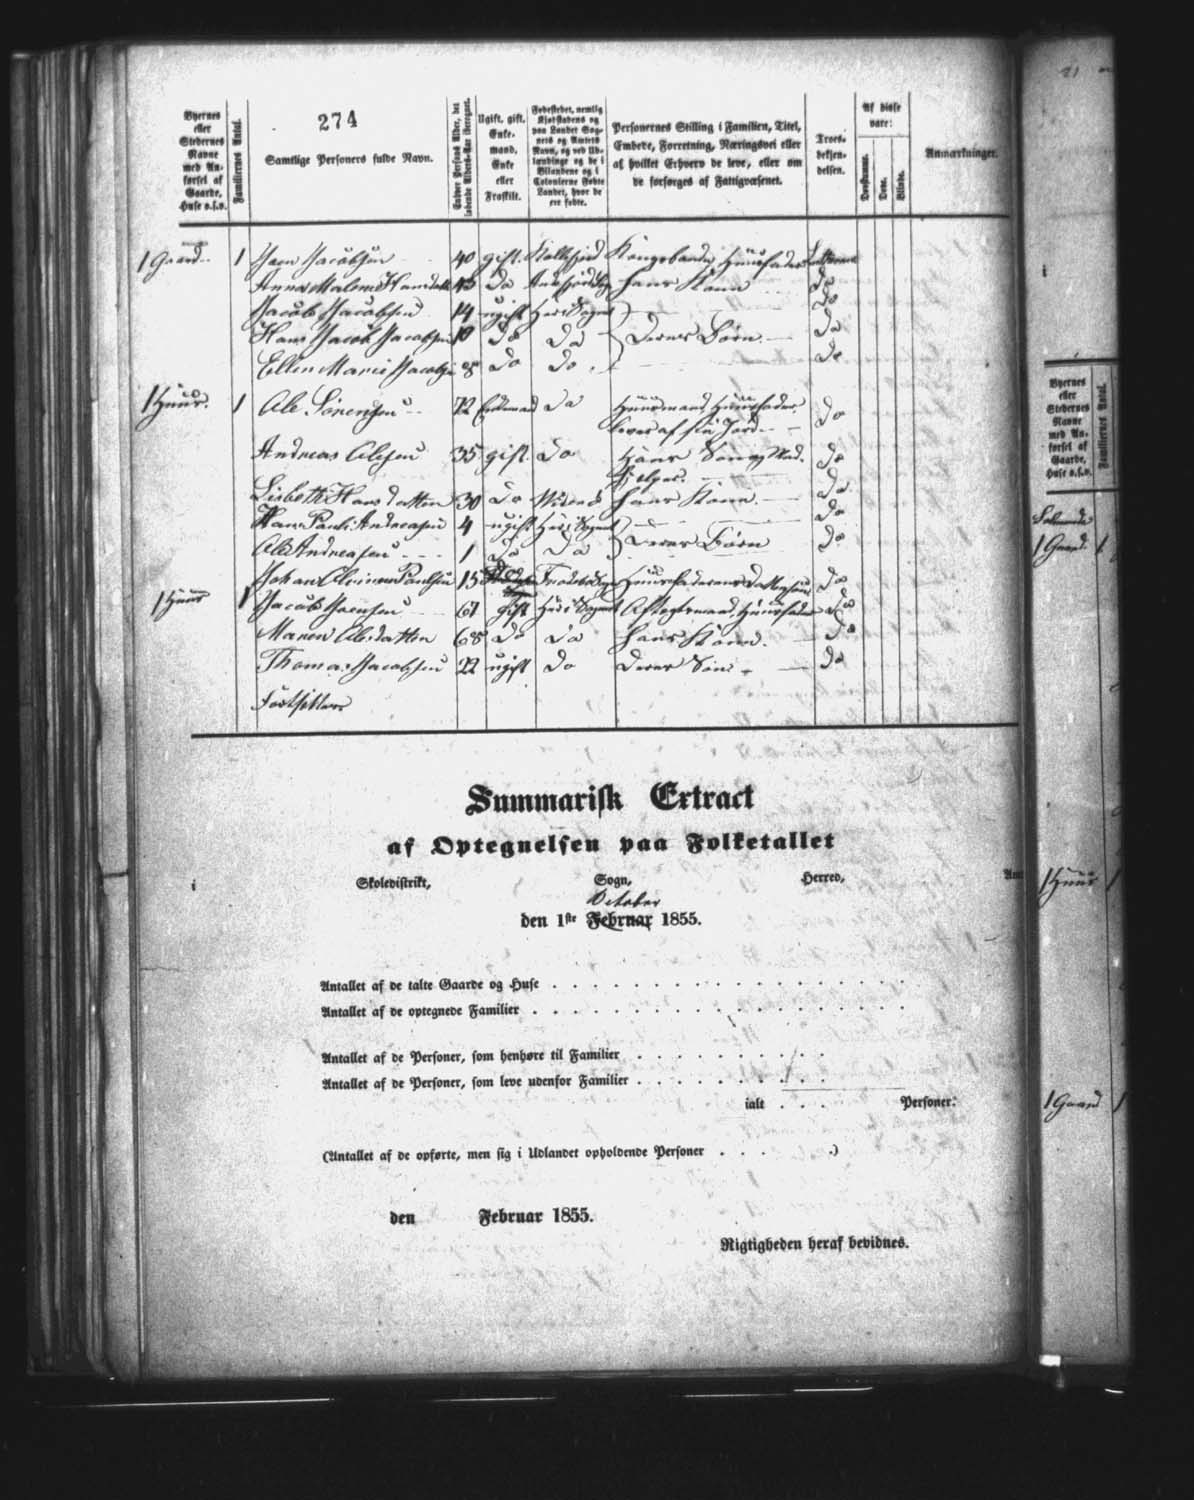 274
Byernes eller Stedernes Navne med Anførsel af Gaarde, Huse o.s.v.
Familiernes Antal.
Samtlige Personers fulde Navn.
Enhver Persons Alder, det løbende Alders-Aar iberegnet.
Ugift, gift, Enkemand, Enke eller Fraskilt.
Fødestedet, nemlig Kjøbstadens og paa Landet Sognets og Amtets Navn, og ved Udlændinge og de i Bilandene og i Colonierne Fødte Landet, hvor de ere fødte.
Personernes Stilling i Familien, Titel, Embede, Forretning, Næringsvei eller af hvilket Erhverv de leve, eller om de forsørges af Fattigvæsenet.
Troesbekjendelsen.
Af disse vare:
Døvstumme.
Døve.
Blinde.
Anmærkninger.
1 Gaard 1 Joen Jacobsen 40 gift Kollefjord Kongsbonde Huusfader
Anna Malene Hansdatter 43 do hans Kone do
Jacob Jacobsen 14 ugift Her i Sognet do
Hans Jacob Jacobsen 10 do do Deres Børn do
Ellen Marie Jacobs 8 do do do
1 Huus 1 Ole Sørensen 72 Enkemand do Huusmand, Huusfader lever af sin Jord do
Andreas Olesen 35 gift do Hans Søn og Medhjelper do
Lisbeth Hansdatter 30 do hans Kone do
Hans Pauli Andreasen 4 ugift Her i Sognet do
Ole Andreasen 1 do do Deres Børn do
Johan Poulsen 15 Huusfaderens Dattersøn do
1 Huus 1 Jacob Joensen 61 gift Her i Sognet Aftægtsmand Huusfader do
Maren Olesdatter 68 do do hans Kone do
Thomas Jacobsen 22 ugift do Deres Søn do
Fortsættes
Summarisk Extract
af Optegnelsen paa Folketallet
i Skoledistrikt, Sogn, Herred, Amt
October
den 1ste Februar 1855.
Antallet af de talte Gaarde og Huse
Antallet af de optegnede Familier
Antallet af de Personer, som henhøre til Familier
Antallet af de Personer, som leve udenfor Familier
ialt Personer.
(Antallet af de opførte, men sig i Udlandet opholdende Personer .)
den Februar 1855.
Rigtigheden heraf bevidnes.
i
Byernes eller Stedernes Navne med Anførsel af Gaarde, Huse o.s.v.
Familiernes Antal.
1 Gaard 1
1 Huus 1
1 Gaard 1